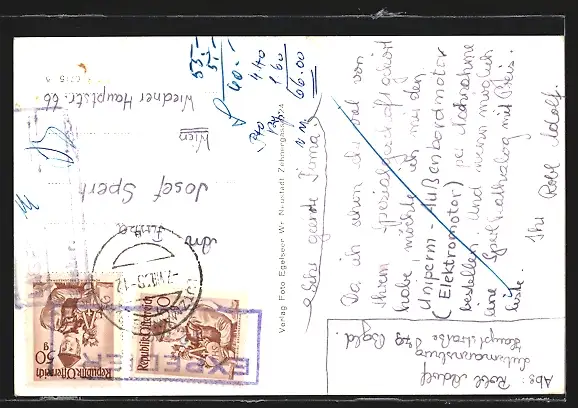 Sehr geehrte Firma!
Da ich schon so viel von
Ihrem Spezialgeschäft gehört
habe, möchte ich mir den
Uniperm-Außenbordmotor
(Elektromotor) per Nachnahme
bestellen und wenn möglich
eine Spielkatalog mit Preis-
liste.
Ihr Robl Adolf.
Abs: Robl Adolf
Hauptstraße
Bgld.
Verlag Foto Egelseer Wr. Neustadt Zehnergasse
An
Firma
Josef Sperk
Wien
Wiedner Hauptstr. 66
53.–
5.–
60.–
4.40
1.60
66.00
N.N.
Republik Österreich
50
g
Republik Österreich
50
EXPEDIERT